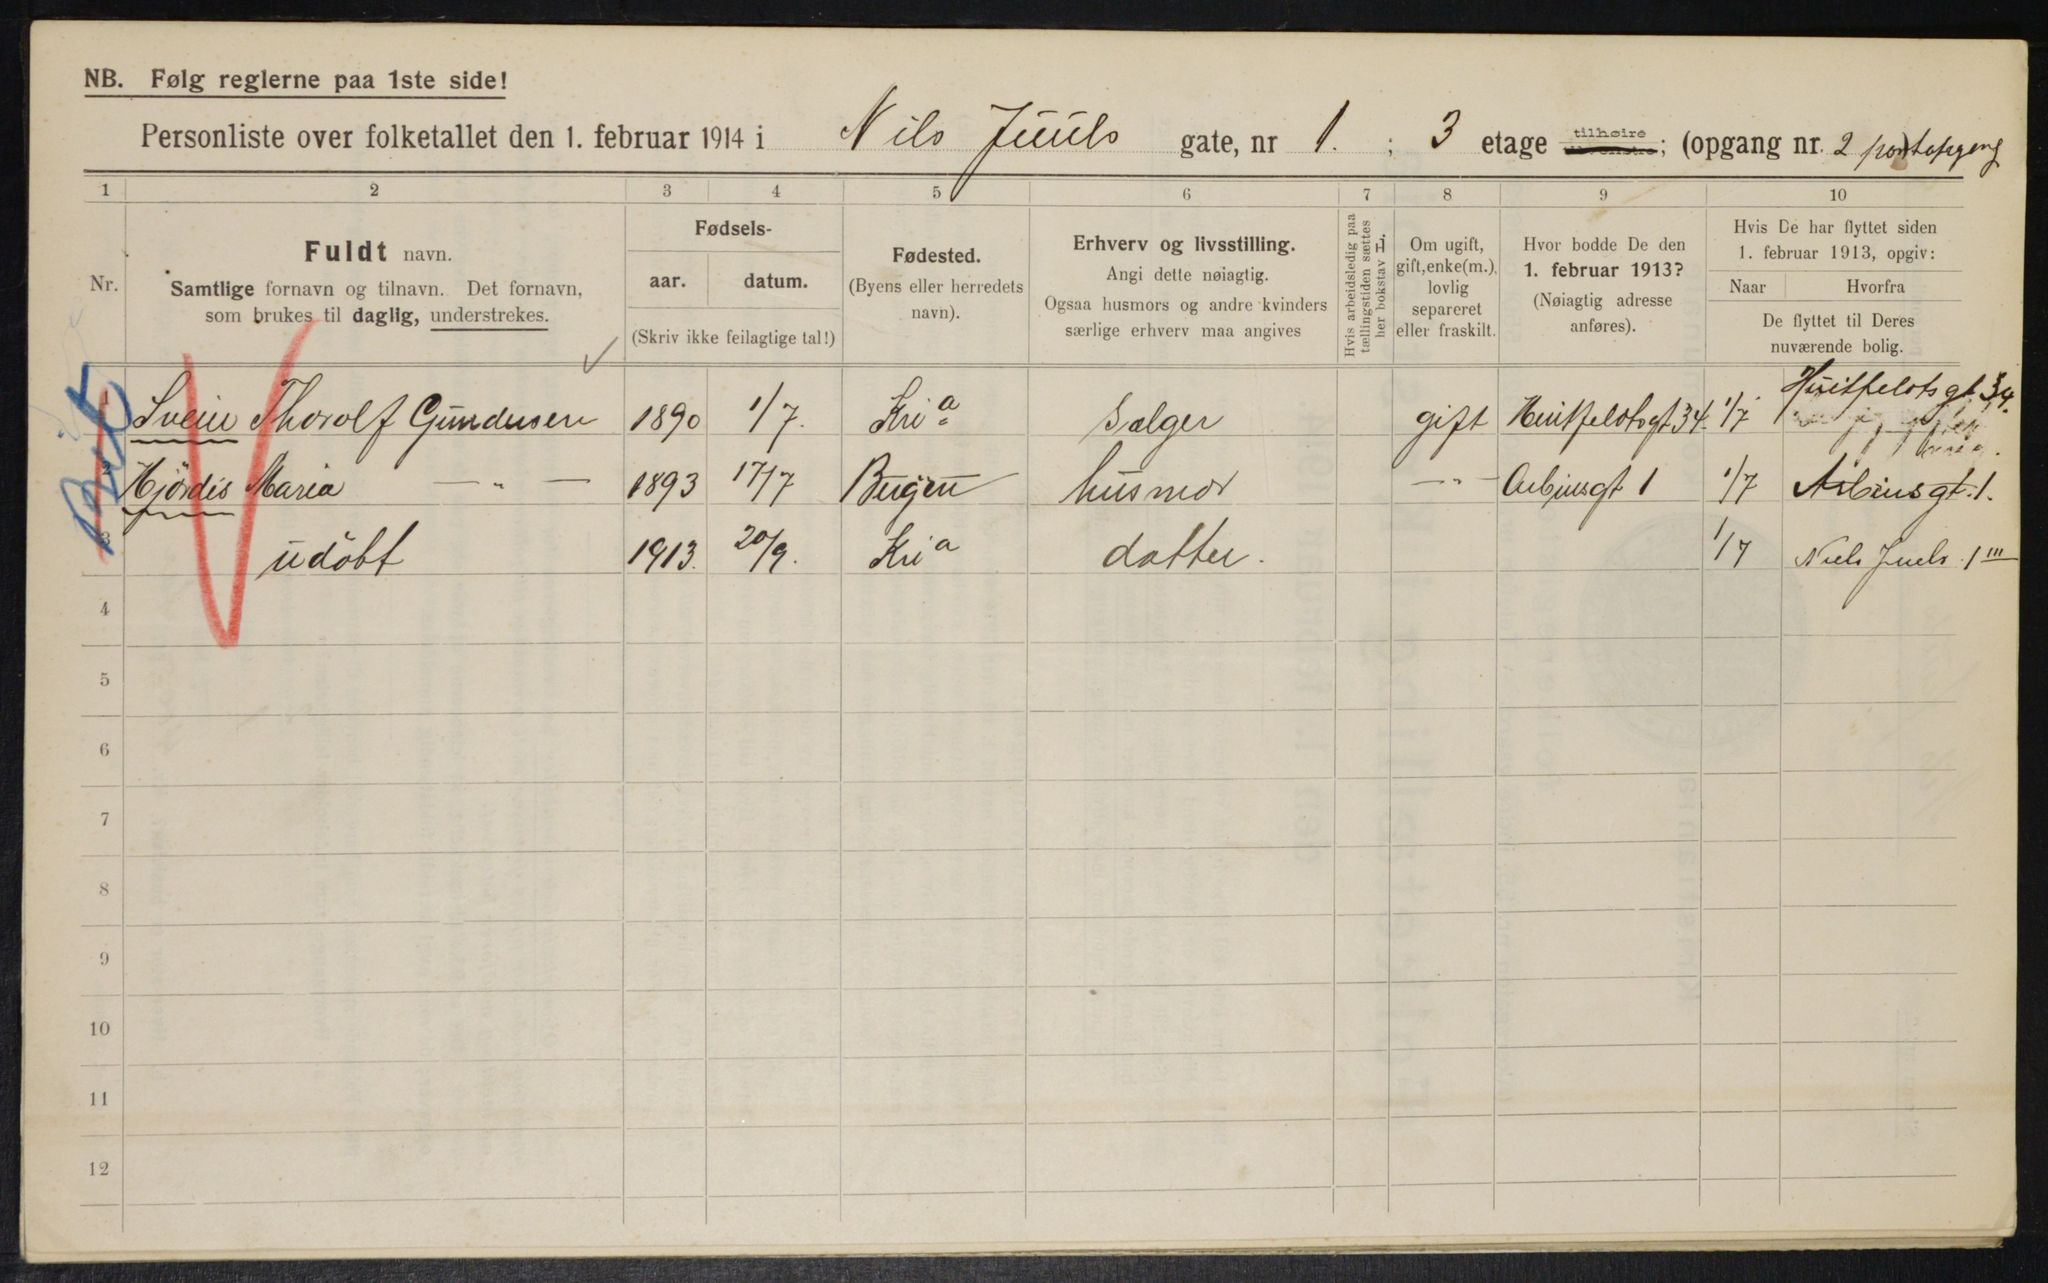 NB. Følg reglerne paa 1ste side!
Personliste over folketallet den 1. februar 1914 i Nils Juuls gate, nr 1. ; 3 etage tilhøire ; (opgang nr. 2 portopgang
1 2 3 4 5 6 7 8 9 10
Nr.
Fuldt navn.
Samtlige fornavn og tilnavn. Det fornavn,
som brukes til daglig, understrekes.
Fødsels-
aar. datum.
(Skriv ikke feilagtige tal!)
Fødested.
(Byens eller herredets
navn).
Erhverv og livsstilling.
Angi dette nøiagtig.
Ogsaa husmors og andre kvinders
særlige erhverv maa angives
Hvis arbeidsledig paa
tællingstiden sættes
her bokstav L.
Om ugift,
gift, enke(m.),
lovlig
separeret
eller fraskilt.
Hvor bodde De den
1. februar 1913?
(Nøiagtig adresse
anføres).
Hvis De har flyttet siden
1. februar 1913, opgiv:
Naar Hvorfra
De flyttet til Deres
nuværende bolig.
1 Svein Thorolf Gundersen 1890 1/7. Kria Sælger gift Huitfeldtsgt 34. 1/7 Huitfeldtsgt 34.
2 Hjördis Maria — „ — 1893 17/7 Bergen husmor — „ — Arbinsgt 1 1/7 Arbinsgt. 1.
3 udöbt 1913. 20/9. Kria datter. 1/7 Niels Juels 1 III
4
5
6
7
8
9
10
11
12